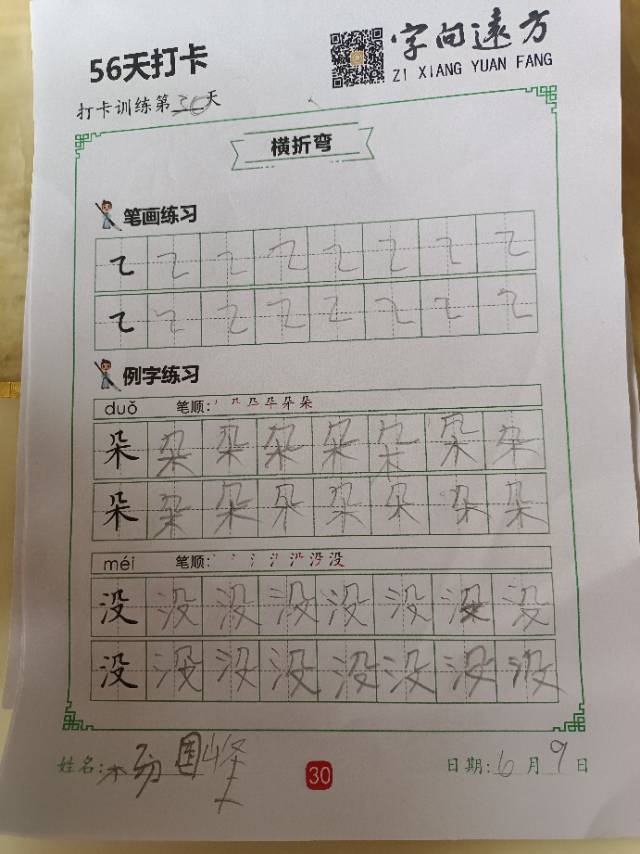 56天打卡
字向远方
ZI XIANG YUAN FANG
打卡训练第36天
横折弯
笔画练习
㇍ ㇍ ㇍ ㇍ ㇍ ㇍ ㇍ ㇍
㇍ ㇍ ㇍ ㇍ ㇍ ㇍ ㇍ ㇍
例字练习
duǒ 笔顺:
朵 朵 朵 朵 朵 朵 朵 朵
朵 朵 朵 朵 朵 朵 朵 朵
méi 笔顺:
没 没 没 没 没 没 没 没
没 没 没 没 没 没 没 没
姓名:杨国峰
30
日期:6月9日